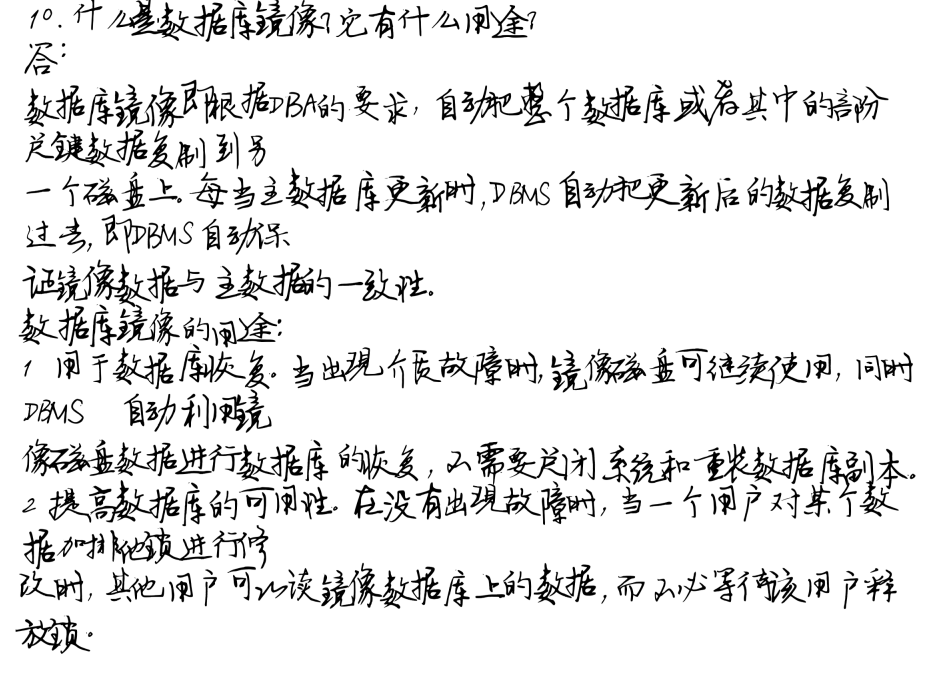 10.什么是数据库镜像?它有什么用途?
答:
数据库镜像即根据DBA的要求,自动把整个数据库或者其中的部分
关键数据复制到另
一个磁盘上。每当主数据库更新时,DBMS自动把更新后的数据复制
过去,即DBMS自动保
证镜像数据与主数据的一致性。
数据库镜像的用途:
1 用于数据库恢复。当出现介质故障时,镜像磁盘可继续使用,同时
DBMS 自动利用镜
像磁盘数据进行数据库的恢复,不需要关闭系统和重装数据库副本。
2 提高数据库的可用性。在没有出现故障时,当一个用户对某个数
据加排他锁进行修
改时,其他用户可以读镜像数据库上的数据,而不必等待该用户释
放锁。